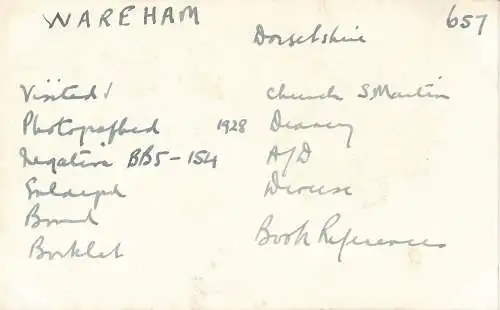 WAREHAM
Dorsetshire
657
Visited ✓
Church S. Martin
Photographed 1928
Deanery
Negative BB5-154
A/D
Enlarged
Diocese
Bound
Book References
Booklet